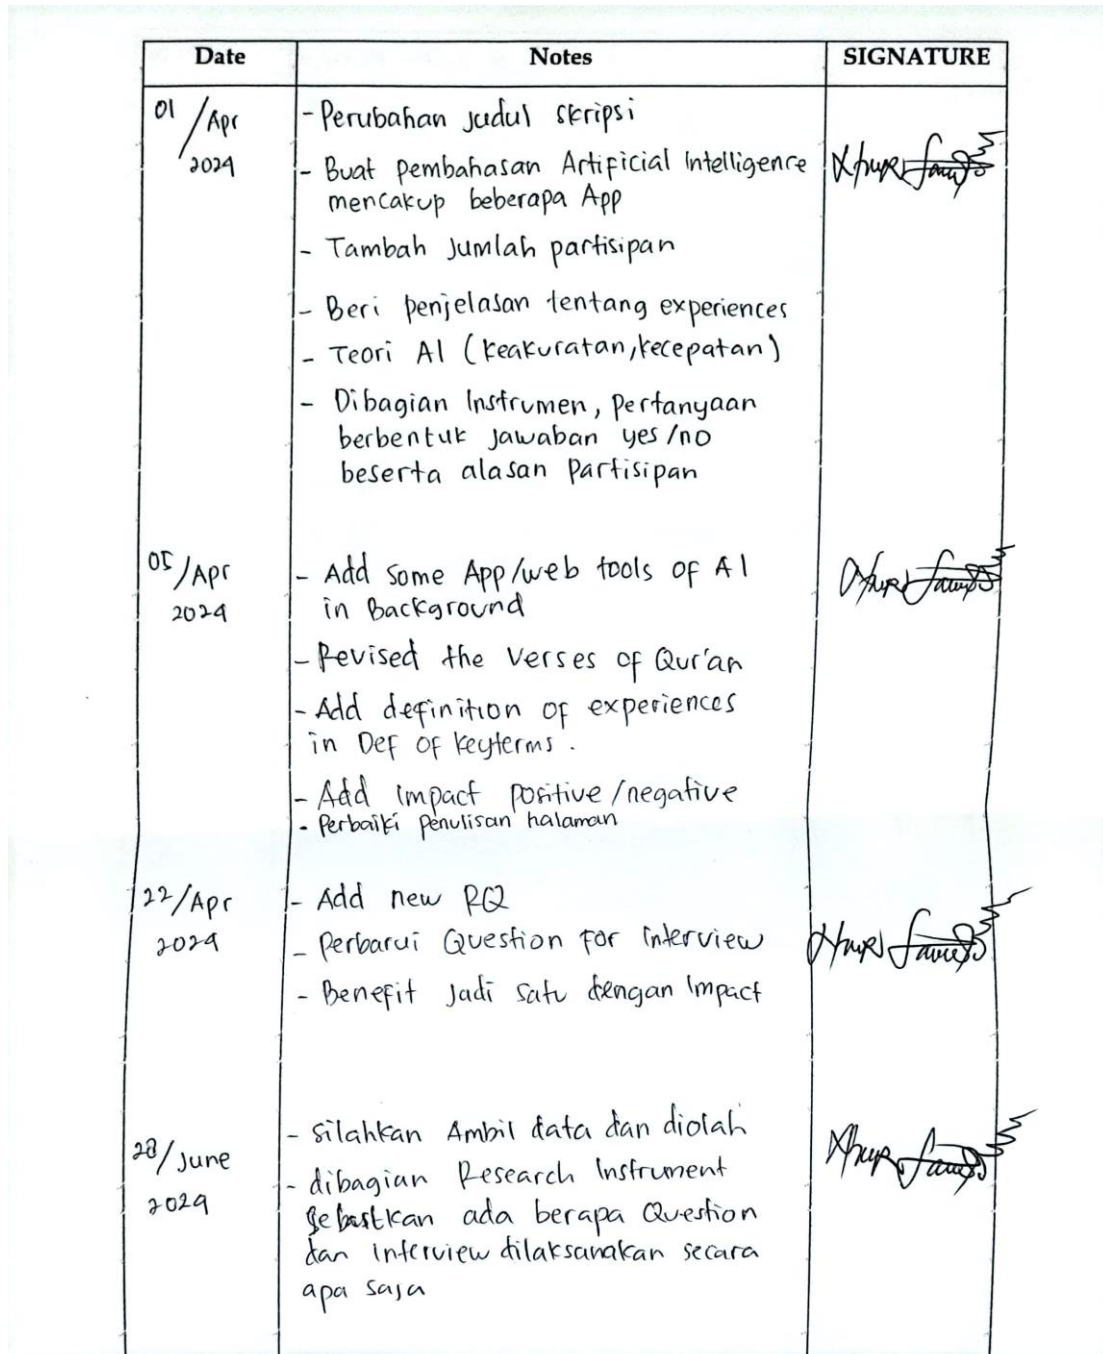 Date Notes SIGNATURE
01/Apr
2024
- Perubahan judul skripsi
- Buat pembahasan Artificial Intelligence
mencakup beberapa App
- Tambah Jumlah partisipan
- Beri penjelasan tentang experiences
- Teori AI (keakuratan, kecepatan)
- Dibagian Instrumen, pertanyaan
berbentuk Jawaban yes/no
beserta alasan Partisipan
05/Apr
2024
- Add some App/web tools of AI
in Background
- Revised the Verses of Qur'an
- Add definition of experiences
in Def of keyterms.
- Add impact positive/negative
- Perbaiki penulisan halaman
22/Apr
2024
- Add new RQ
- Perbarui Question for interview
- Benefit Jadi satu dengan Impact
28/June
2024
- Silahkan Ambil data dan diolah
- dibagian Research Instrument
Sebutkan ada berapa Question
dan interview dilaksanakan secara
apa saja